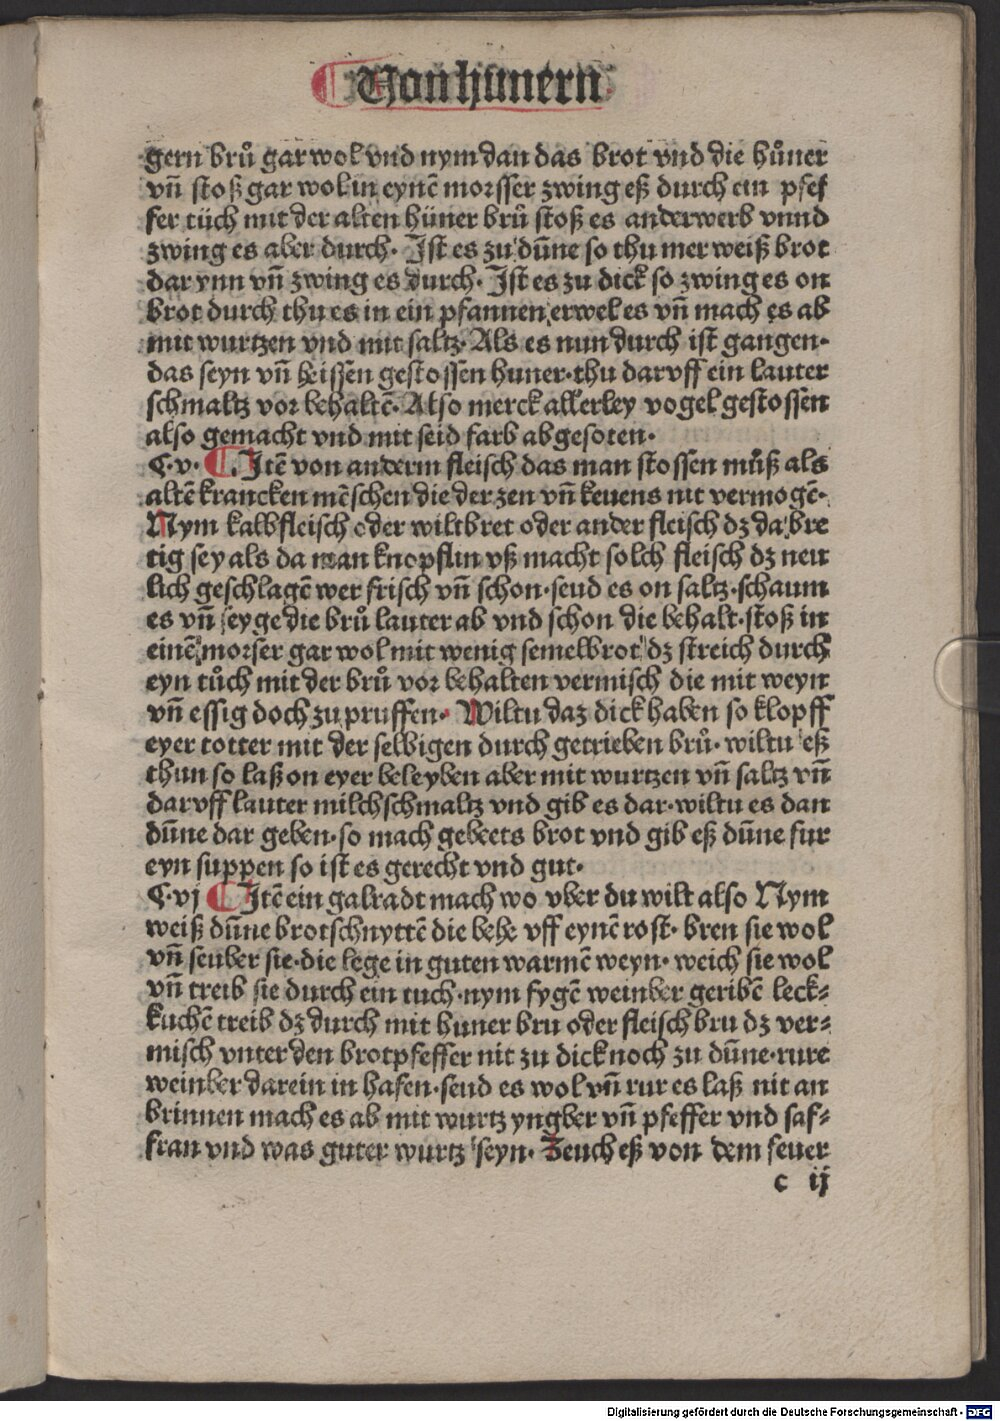 Von hunern
gern bruͦ gar wol vnd nym dan das brot vnd die huͦner
vn̄ stoß gar wol in eynē morsser zwing eß durch ein pfef
fer tüch mit der alten hüner bruͦ stoß es anderwerb vnnd
zwing es aber durch· Ist es zu dün̄e so thu mer weiß brot
dar ynn vn̄ zwing es durch· Ist es zu dick so zwing es on
brot durch thu es in ein pfannen erwel es vn̄ mach es ab
mit wurtzen vnd mit saltz· Als es nun durch ist gangen·
das seyn vn̄ heissen gestossen huner·thu daruff ein lauter
schmaltz vor behaltē· Also merck allerley vogel gestossen
also gemacht vnd mit seid farb abgesoten·
C·v· Itē von anderm fleisch das man stossen muͦß als
altē krancken mēschen die der zen vn̄ keuens nit vermogē·
Nym kalbfleisch oder wiltbret oder ander fleisch dz da bre
tig sey als da man knopflin vß macht solch fleisch dz neu
lich geschlagē wer frisch vn̄ schon·seud es on saltz·schaum
es vn̄ seyge die bruͦ lauter ab vnd schon die behalt·stoß in
einē morser gar wol mit wenig semelbrot dz streich durch
eyn tuͦch mit der bruͦ vor behalten vermisch die mit weyn
vn̄ essig doch zu pruffen· Wiltu daz dick haben so klopff
eyer totter mit der selbigen durch getrieben bruͦ· wiltu eß
thun so laß on eyer beleyben aber mit wurtzen vn̄ saltz vn̄
daruff lauter milchschmaltz vnd gib es dar·wiltu es dan
dün̄e dar geben·so mach gebeets brot vnd gib eß dün̄e fur
eyn suppen so ist es gerecht vnd gut·
C·vj Itē ein galradt mach wo vber du wilt also Nym
weiß dün̄e brotschnyttē die behe vff eynē rost· bren sie wol
vn̄ seuber sie·die lege in guten warmē weyn· weich sie wol
vn̄ treib sie durch ein tuch·nym fygē weinber geribē leck⸗
kuchē treib dz durch mit huner bru oder fleisch bru dz ver⸗
misch vnter den brotpfeffer nit zu dick noch zu dün̄e·rure
weinber darein in hafen·seud es wol vn̄ rur es laß nit an
brinnen mach es ab mit wurtz yngber vn̄ pfeffer vnd saf⸗
fran vnd was guter wurtz seyn· Zeuch eß von dem feuer
c ij
Digitalisierung gefördert durch die Deutsche Forschungsgemeinschaft - DFG